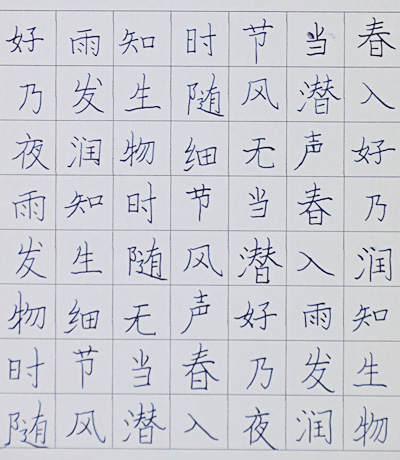 好雨知时节当春
乃发生随风潜入
夜润物细无声好
雨知时节当春乃
发生随风潜入润
物细无声好雨知
时节当春乃发生
随风潜入夜润物